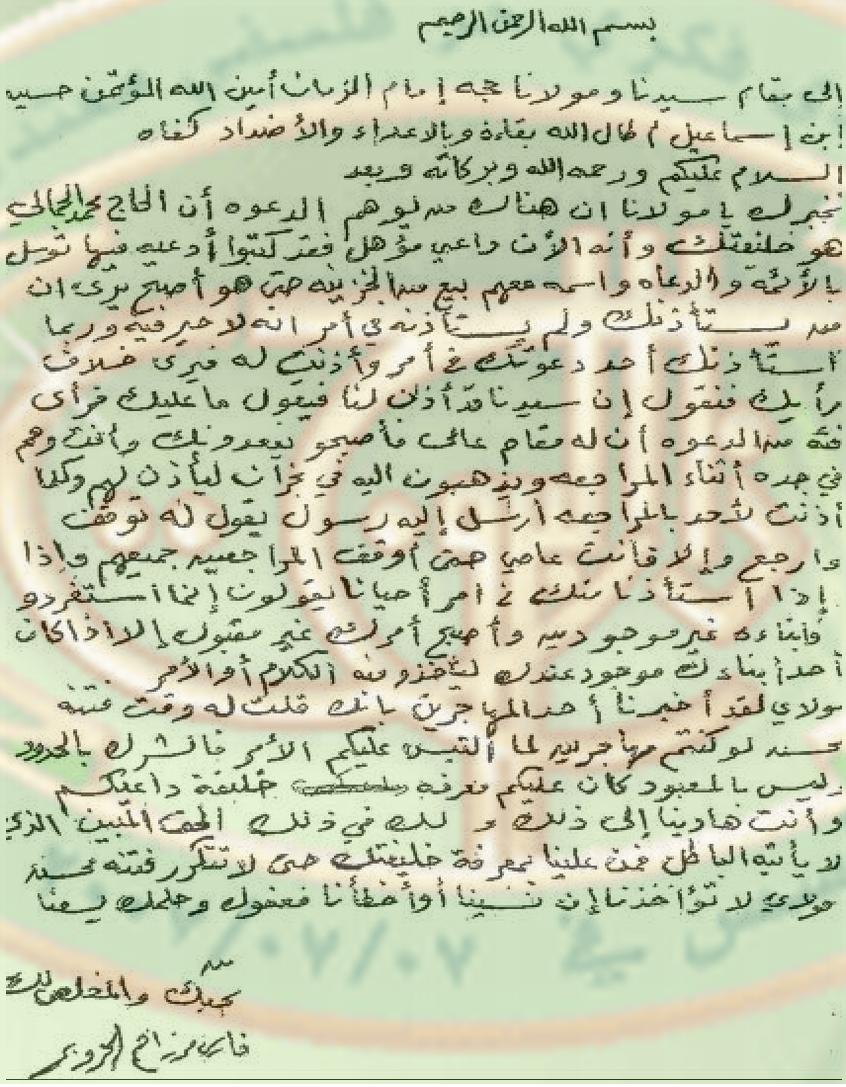 بسم الله الرحمن الرحيم
إلى مقام سيدنا ومولانا حجه إمام الزمان أمين الله المؤتمن حسين
ابن إسماعيل أطال الله بقاءه وبالاعداء والأضداد كفاه
السلام عليكم ورحمه الله وبركاته وبعد
نخبرك يا مولانا ان هناك من توهم الدعوه أن الحاج محمد الجمالي
هو خليفتك وأنه الأن داعي مؤهل فقد كتبوا أدعيه فيها توسل
بالأئمه والدعاه واسمه معهم بيع من الخزينه حتى هو أصبح يرى ان
من يستأذنك ولم يستأذنه في أمر انه لا خير فيه وربما
أستأذنك أحد دعوتك في أمر وأذنت له فيرى خلاف
رأيك فنقول إن سيدنا قد أذن لنا فيقول ما عليك فرأى
فئه من الدعوه أن له مقام عالي فأصبحو يعدونك وأنت وهم
في جده أثناء المراجعه ويذهبون اليه في نجران ليأذن لهم وكلما
أذنت لأحد بالمراجعه أرسل إليه رسول يقول له توقف
وارجع وإلا فأنت عاصي حتى أوقف المراجعين جميعهم وإذا
إذا أستأذنا منك في امر أحيانا يقولون إنما استفردو
وأبناءه غير موجودين وأصبح أمرك غير مقبول إلا اذا كان
أحد أبناءك موجود عندك ليأخذو منه الكلام أو الأمر
مولاي لقد أخبرنا أحد المهاجرين بانك قلت له وقت فتنة
محسنه لو كنتم مهاجرين لما ألتبس عليكم الأمر فالشرك بالحدود
وليس بالمعبود كان عليكم معرفه خليفة داعيكم
وأنت هادينا إلى ذلك و لك في ذلك الحق المبين الذي
لا يأتيه الباطل فمن علينا بمعرفة خليفتك حتى لا تتكرر فتنه محسنه
مولاي لا تؤاخذنا إن نسينا أو أخطأنا فعفوك وحلمك يسعنا
من
محبك والمخلص لك